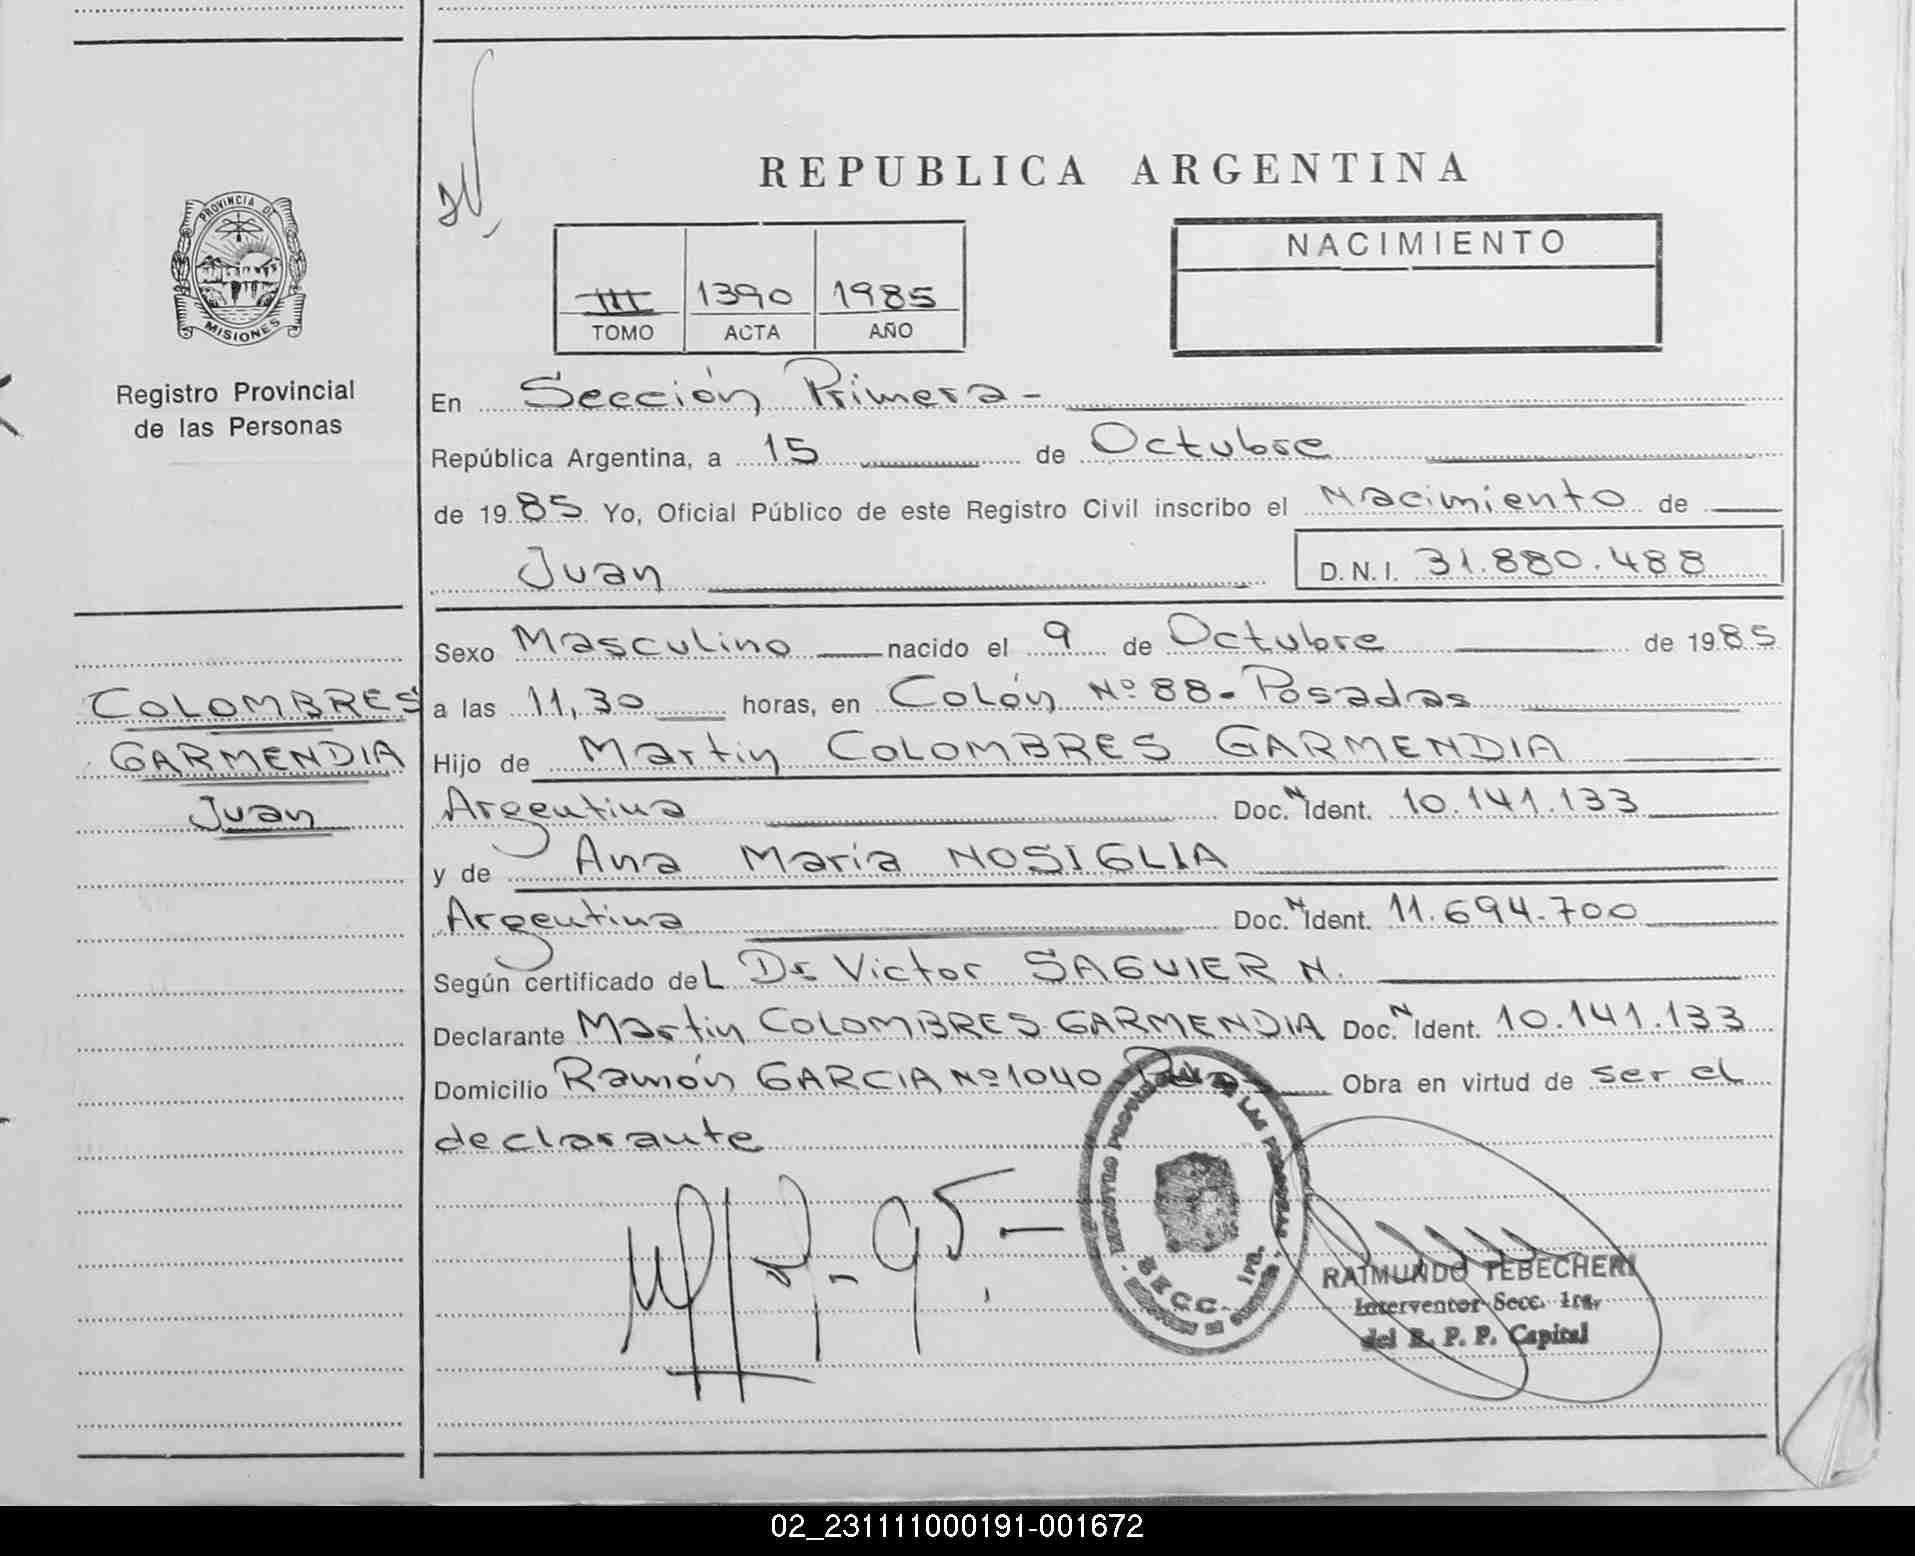 REPUBLICA ARGENTINA
PROVINCIA DE
MISIONES
Registro Provincial
de las Personas
III 1390 1985
TOMO ACTA AÑO
NACIMIENTO
En Sección Primera -
República Argentina, a 15 de Octubre
de 1985 Yo, Oficial Público de este Registro Civil inscribo el Nacimiento de
Juan D.N.I. 31.880.488
Sexo Masculino nacido el 9 de Octubre de 1985
COLOMBRES
GARMENDIA
Juan
a las 11,30 horas, en Colón Nº 88 - Posadas
Hijo de Martin COLOMBRES GARMENDIA
Argentina Doc. N Ident. 10.141.133
y de Ana Maria NOSIGLIA
Argentina Doc. N Ident. 11.694.700
Según certificado del Dr Victor SAGUIER N.
Declarante Martin COLOMBRES GARMENDIA Doc. N Ident. 10.141.133
Domicilio Ramón GARCIA Nº 1040 Obra en virtud de ser el
declarante
SECC. 1ra.
RAIMUNDO TEBECHERI
Interventor Secc. 1ra.
del R. P. P. Capital
02_231111000191-001672